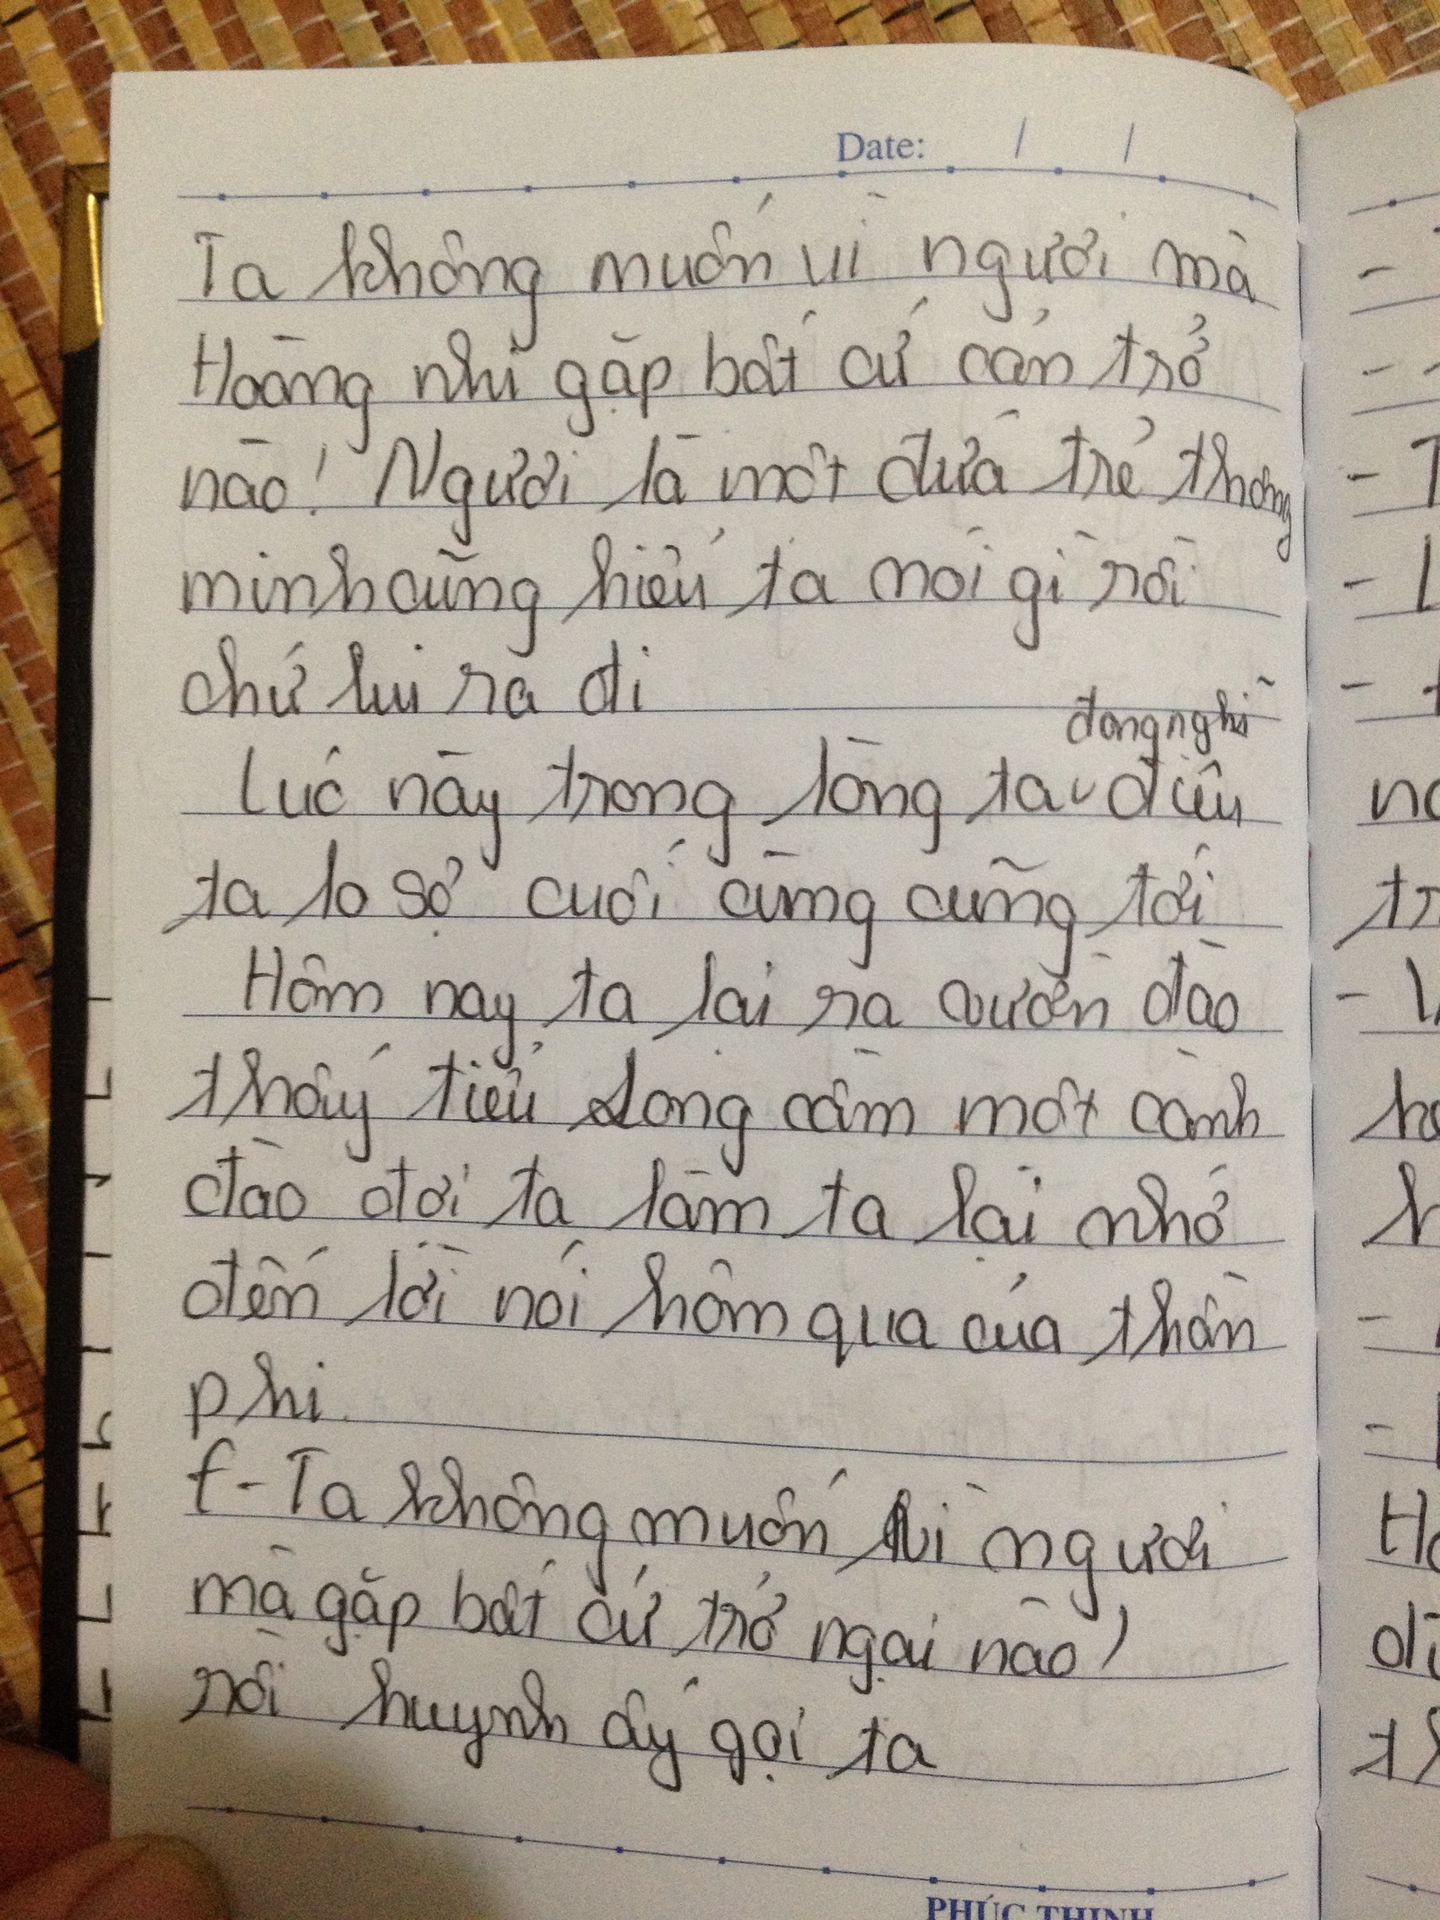 Date: / /
Ta không muốn vì ngươi mà
Hoàng nhi gặp bất cứ cản trở
nào! Ngươi là một đứa trẻ thông
minh cũng hiểu ta nói gì rồi
chứ lui ra đi
đang nghĩ
Lúc này trong lòng ta điều
ta lo sợ cuối cùng cũng tới
Hôm nay ta lại ra vườn đào
thấy tiểu Long cầm một cành
đào đợi ta làm ta lại nhớ
đến lời nói hôm qua của thần
phi
f- Ta không muốn vì ngươi
mà gặp bất cứ trở ngại nào)
rồi huynh ấy gọi ta
PHÚC THỊNH